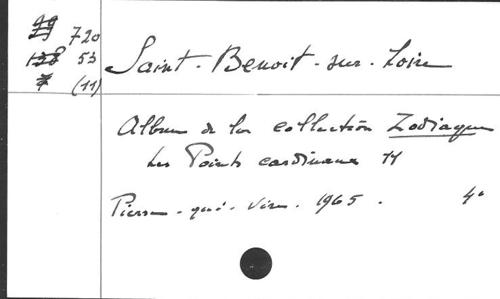 99 720
138 53
7 (11)
Saint-Benoit-sur-Loire
Album de la collection Zodiaque
Les Points cardinaux 11
Pierre-qui-Vire. 1965. 4°